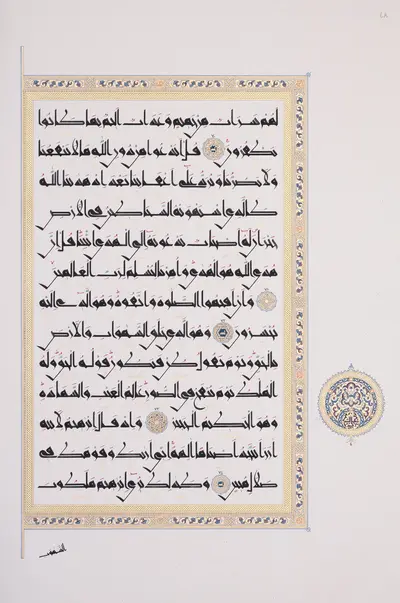 لهم شراب من حميم وعذاب أليم بما كانوا
يكفرون قل أندعوا من دون الله ما لا ينفعنا
ولا يضرنا ونرد على أعقابنا بعد إذ هدانا الله
كالذي استهوته الشياطين في الأرض
حيران له أصحاب يدعونه إلى الهدى ائتنا قل إن
هدى الله هو الهدى وأمرنا لنسلم لرب العالمين
وأن أقيموا الصلوة واتقوه وهو الذي إليه
تحشرون وهو الذي خلق السموات والأرض
بالحق ويوم يقول كن فيكون قوله الحق وله
الملك يوم ينفخ في الصور عالم الغيب والشهادة
وهو الحكيم الخبير وإذ قال إبراهيم لأبيه
آزر أتتخذ أصناما آلهة إني أراك وقومك في
ضلال مبين وكذلك نري إبراهيم ملكوت
السموت